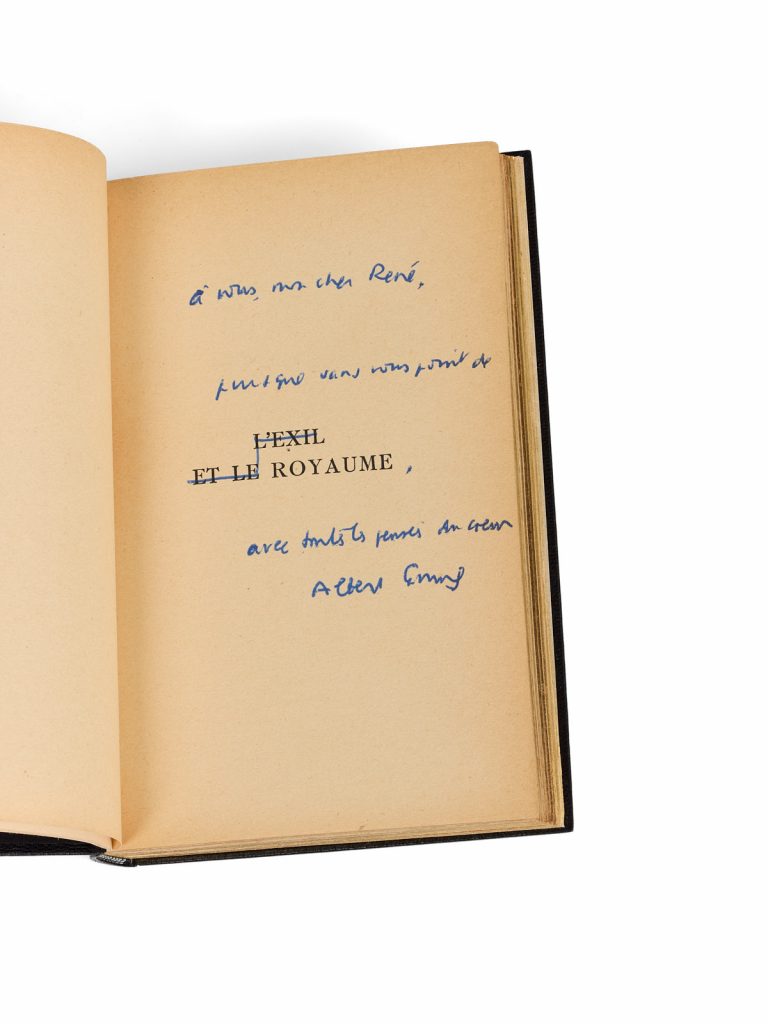 à vous, mon cher René,
puisque sans vous point de
L'EXIL
ET LE ROYAUME,
avec toutes les pensées du coeur
Albert Camus